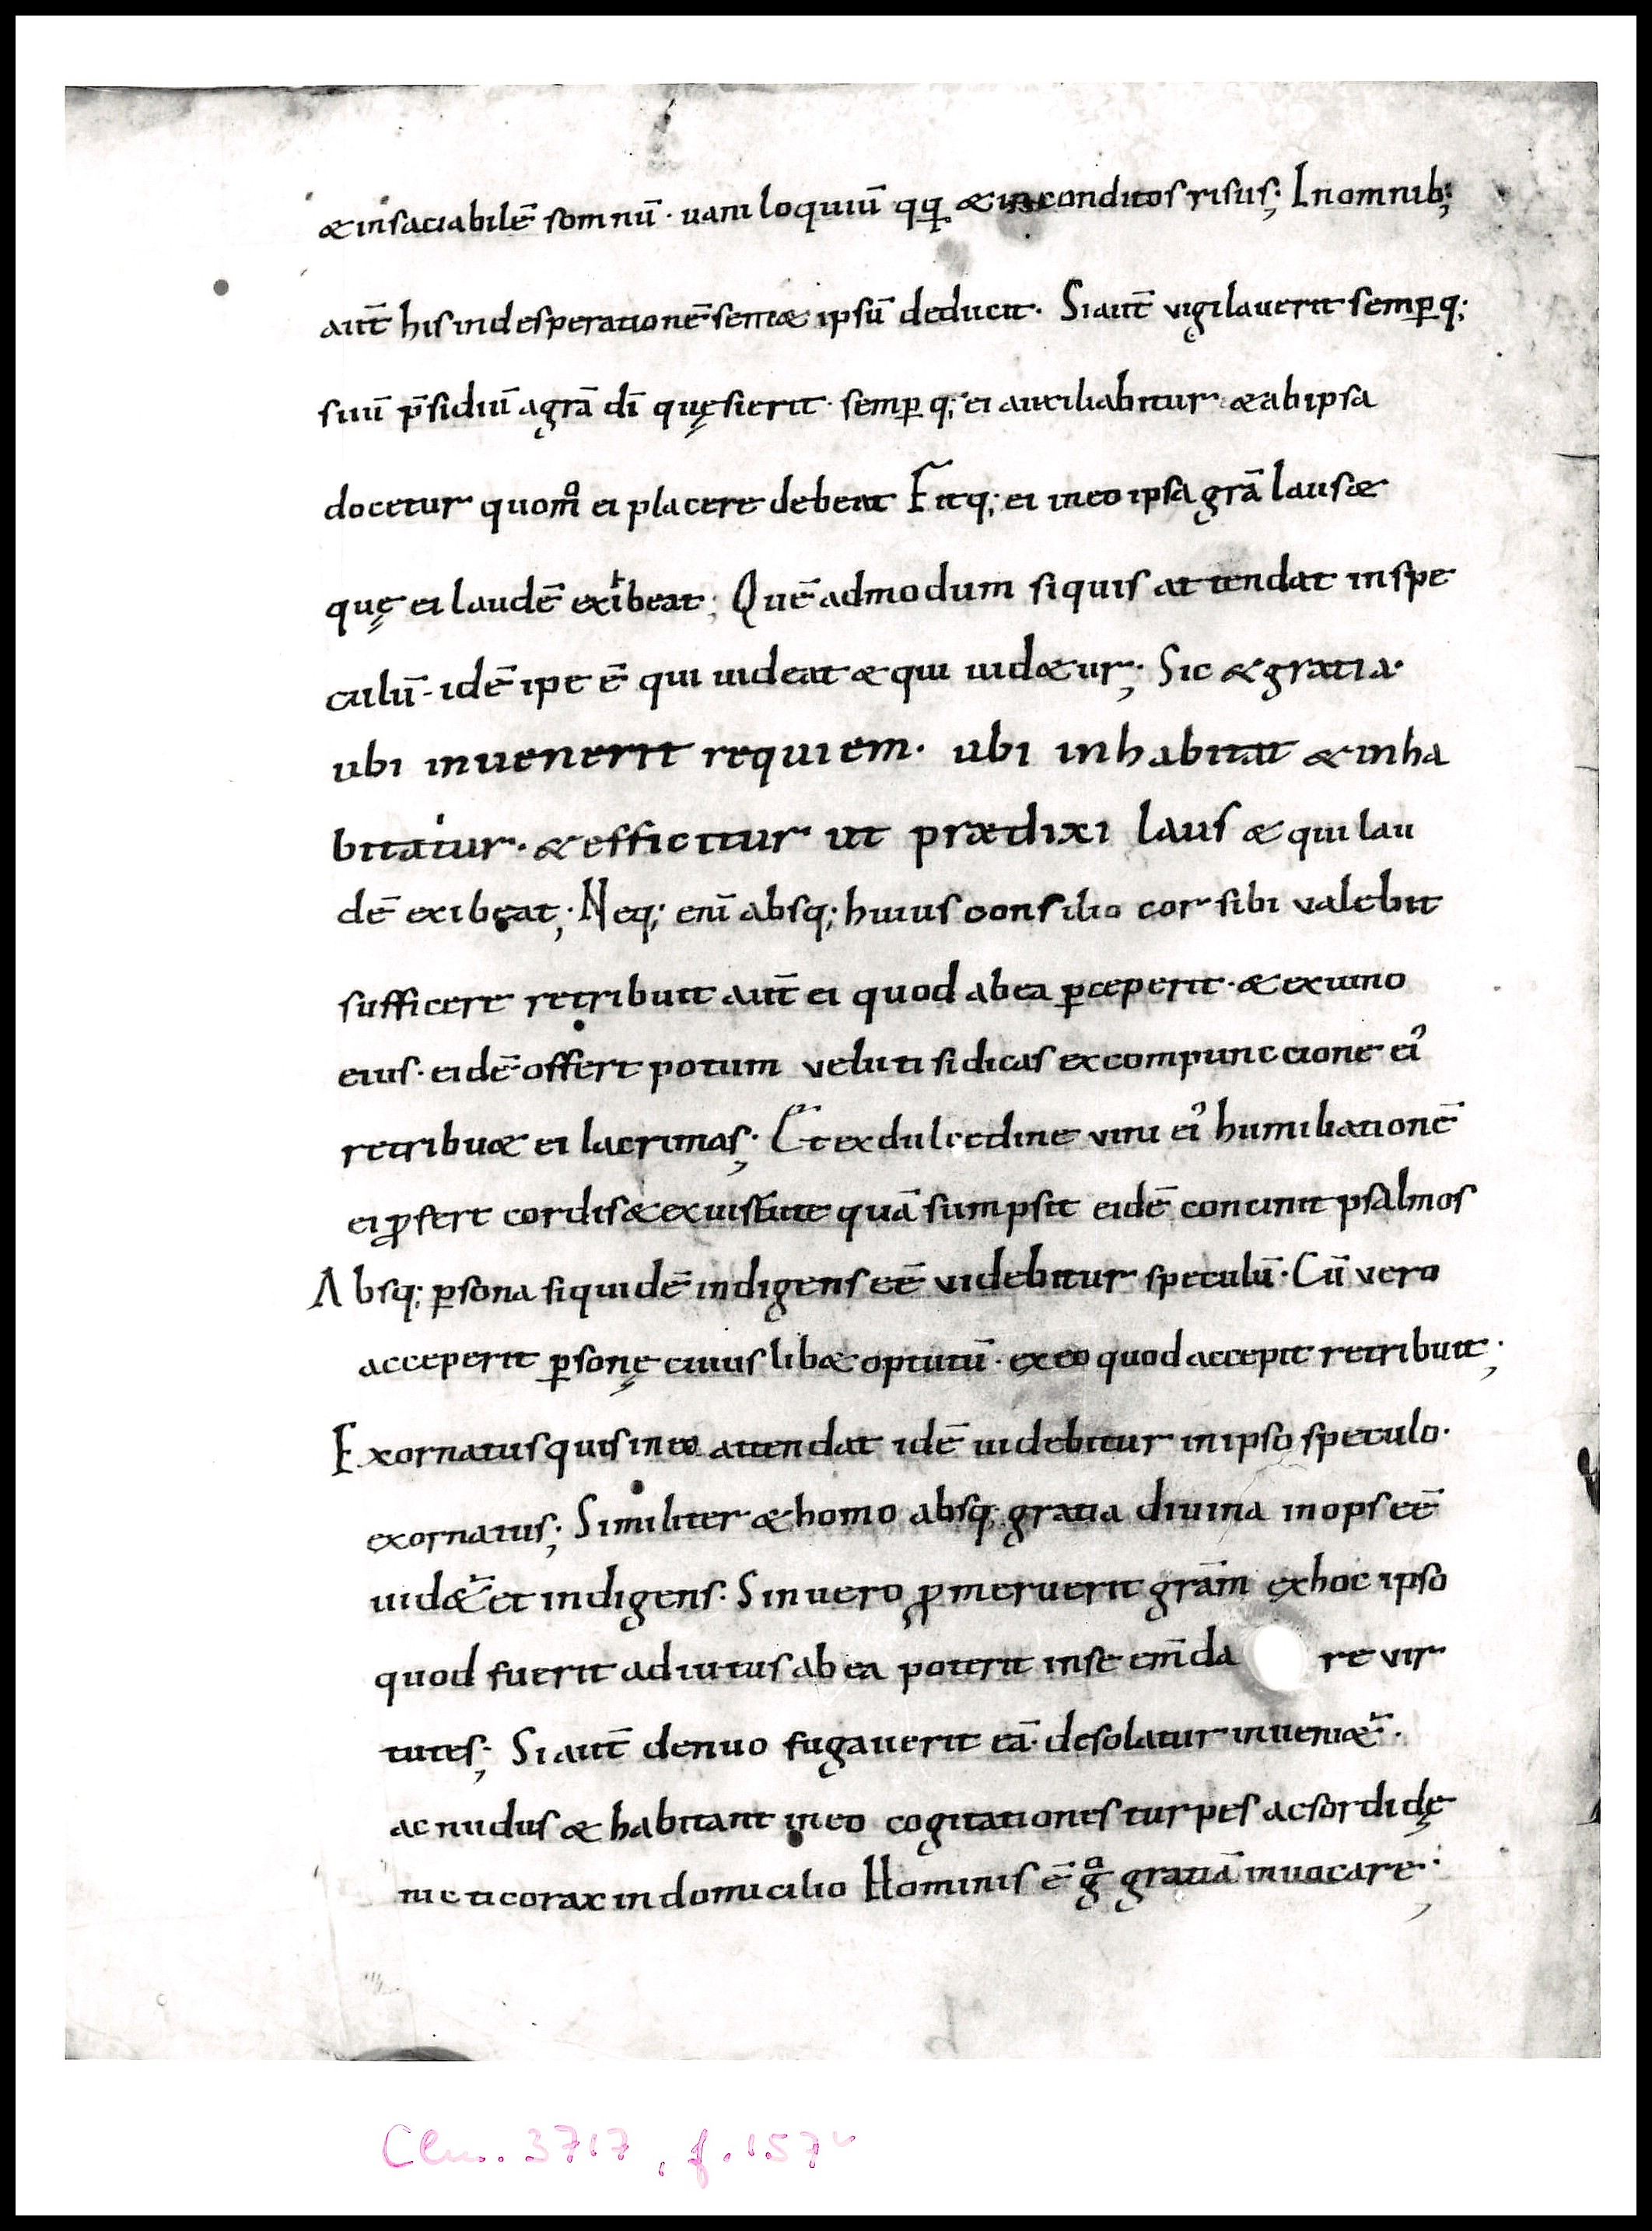 &insaciabilē somnū· uaniloquiū qq; &inconditos risus; Inomnib;
aut̄ his indesperationē sem&ipsū deducit· Siaut̄ vigilauerit semꝑq;
suū p̄sidiū agrā dī quęsierit· semꝑq; ei auxiliabitur &abipsa
docetur quom̊ ei placere debeat Fitq; ei ineo ipsa grā laus&
quę ei laudē exibeat; Quēadmodum siquis attendat inspe
culū· idē ipe ē qui uideat & qui uid&ur; Sic & gratia·
ubi inuenerit requiem· ubi inhabitat & inha
bitatur· & efficitur ut prædixi laus & qui lau
dē exibeat; Neq; enī absq; huius consilio cor sibi valebit
sufficere retribuit aut̄ ei quod abea ꝑceperit· & exuino
eius· eidē offert potum veluti sidicas excompunccione ei᾽
retribu& ei lacrimas; Et exdulcedine vini ei᾽ humiliationē
ei ꝓfert cordis & ex quā sumpsit eidē concinit psalmos
Absq; ꝑsona siquidē indigens eē videbitur speculū· Cū vero
acceperit ꝑsonę cuiuslib& optutū· exeo quod accepit retribuit;
Exornatus quis ineo attendat idē uidebitur inipso speculo·
exornatus; Similiter & homo absq; gratia diuina inops eē
uid&̄ et indigens· Sinuero ꝓmeruerit grām exhoc ipso
quod fuerit adiutus abea poterit inse em̄da re vir
tutes; Siaut̄ denuo fugauerit eā· desolatur inueni&̄·
ac nudus & habitant ineo cogitationes turpes ac sordidę
nicticorax in domicilio Hominis ē g̊ gratiā inuocare;
Clm. 3717, f. 157v